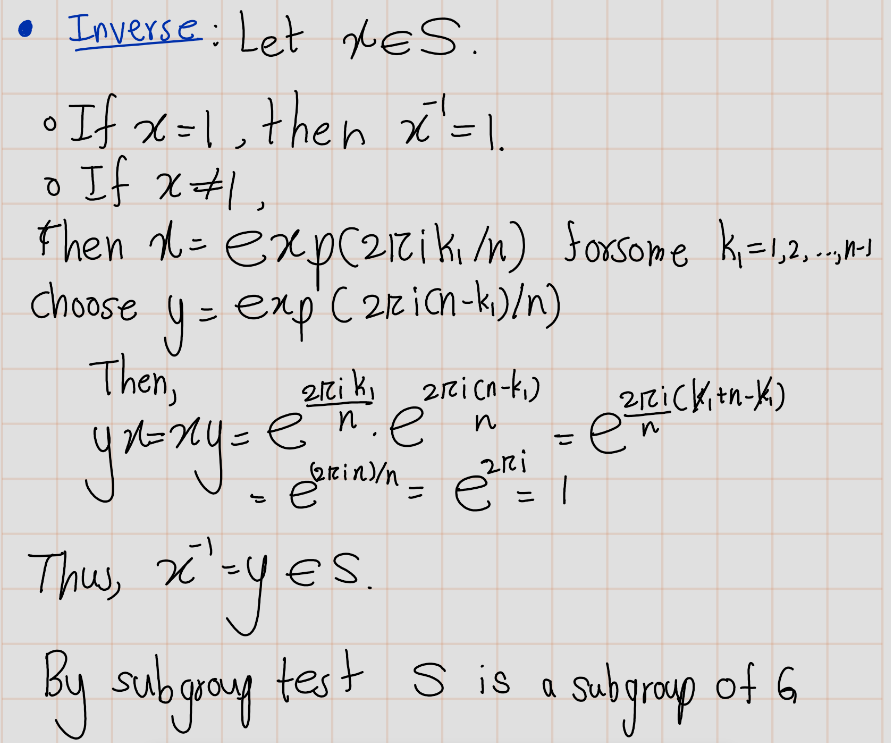 • Inverse: Let x∈S.
∘ If x=1, then x⁻¹=1.
∘ If x≠1,
then x= exp(2πik₁/n) for some k₁=1,2,...,n-1
choose y = exp(2πi(n-k₁)/n)
Then,
yx=xy= e^{\frac{2πik₁}{n}} . e^{\frac{2πi(n-k₁)}{n}} = e^{\frac{2πi}{n}(k₁+n-k₁)}
= e^{(2πin)/n} = e^{2πi} = 1
Thus, x⁻¹=y∈S.
By subgroup test S is a subgroup of G